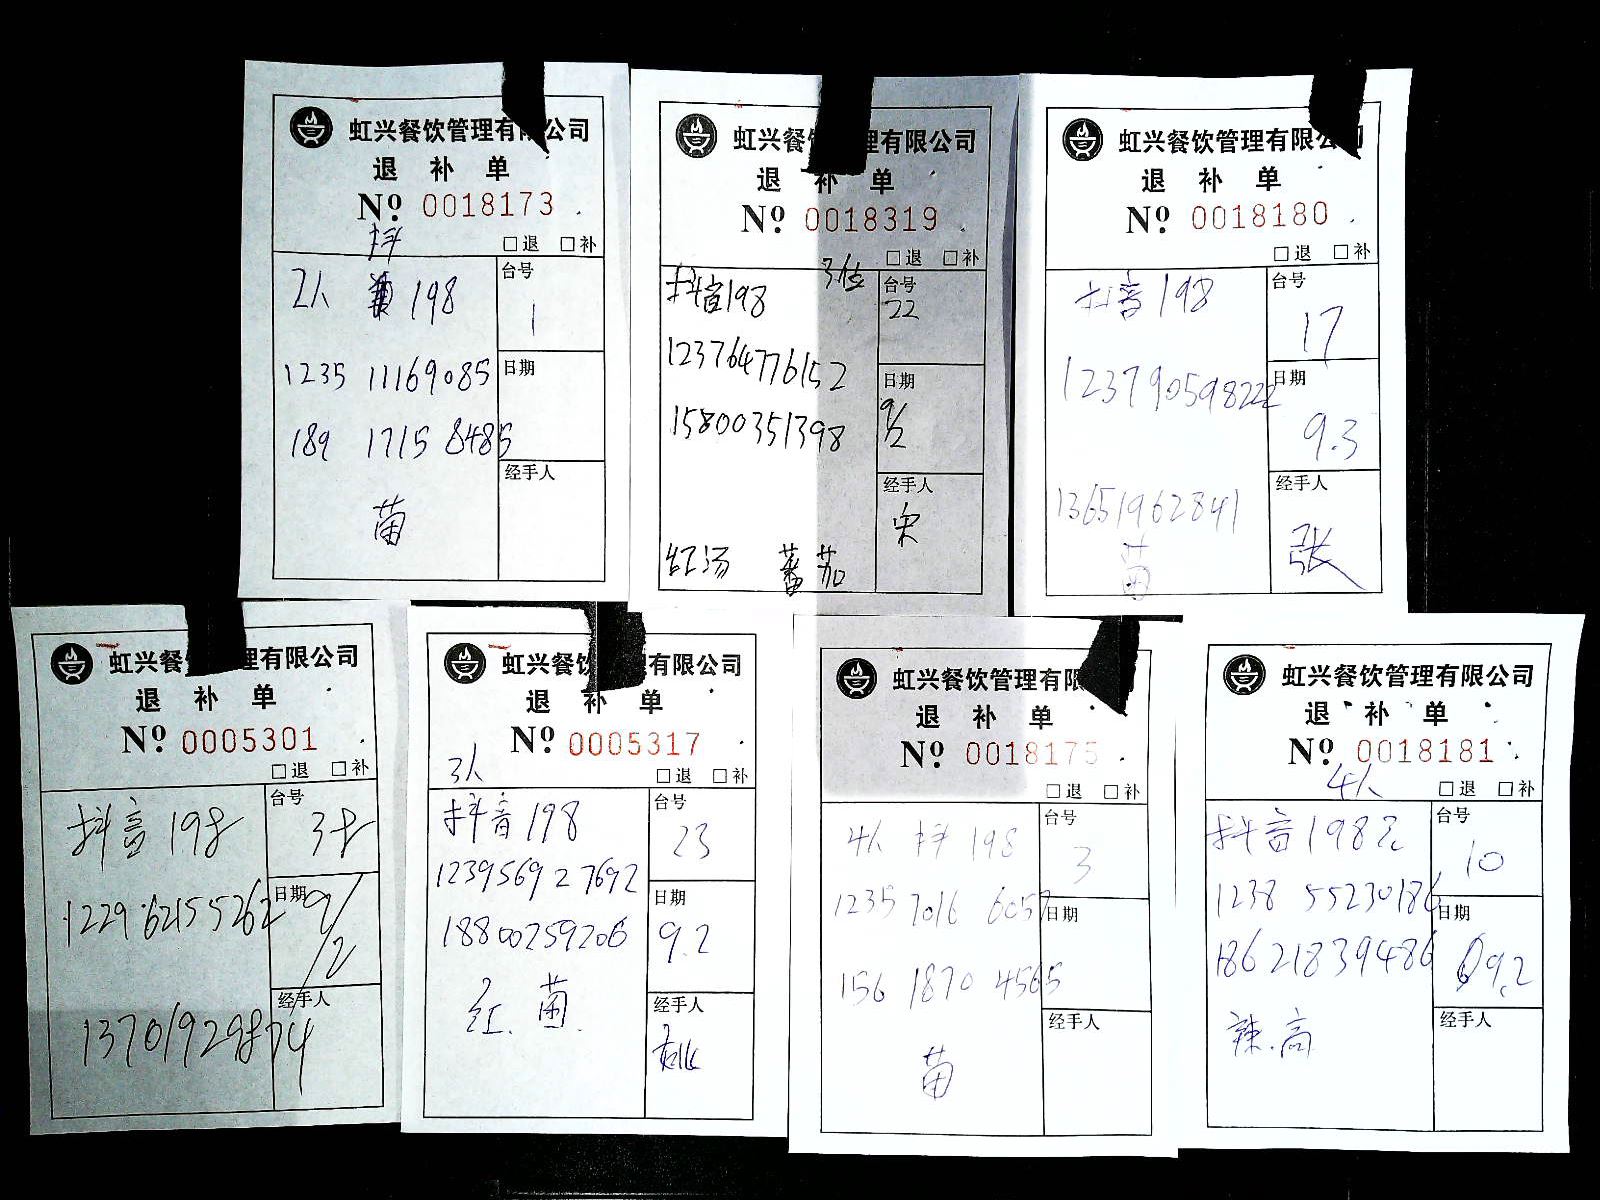 虹兴餐饮管理有限公司
退 补 单
Nº 0018173
抖
□退 □补
2人 198
台号
1
1235 11169085
日期
189 1715 8485
经手人
菌
虹兴餐饮 理有限公司
退 补 单
Nº 0018319
□退 □补
抖音198 3位
台号
22
123764776152
日期
9/2
15800351398
经手人
宋
红汤 蕃茄
虹兴餐饮管理有限公司
退 补 单
Nº 0018180
□退 □补
抖音198
台号
17
123790598222
日期
9.3
13651962841
经手人
张
菌
虹兴餐 理有限公司
退 补 单
Nº 0005301
□退 □补
抖音198
台号
38
1229 62155262
日期
9/2
经手人
13701929874
虹兴餐饮 有限公司
退 补 单
Nº 0005317
3人
□退 □补
抖音198
台号
23
123956927692
日期
9.2
18800259206
红. 菌.
经手人
虹兴餐饮管理有限
退 补 单
Nº 0018175
□退 □补
4人 抖 198
台号
3
1235 7016 6057
日期
156 1870 4565
经手人
菌
虹兴餐饮管理有限公司
退 补 单
Nº 0018181
4人
□退 □补
抖音198元
台号
10
1238 55230186
日期
09.2
18621839486
经手人
辣.高